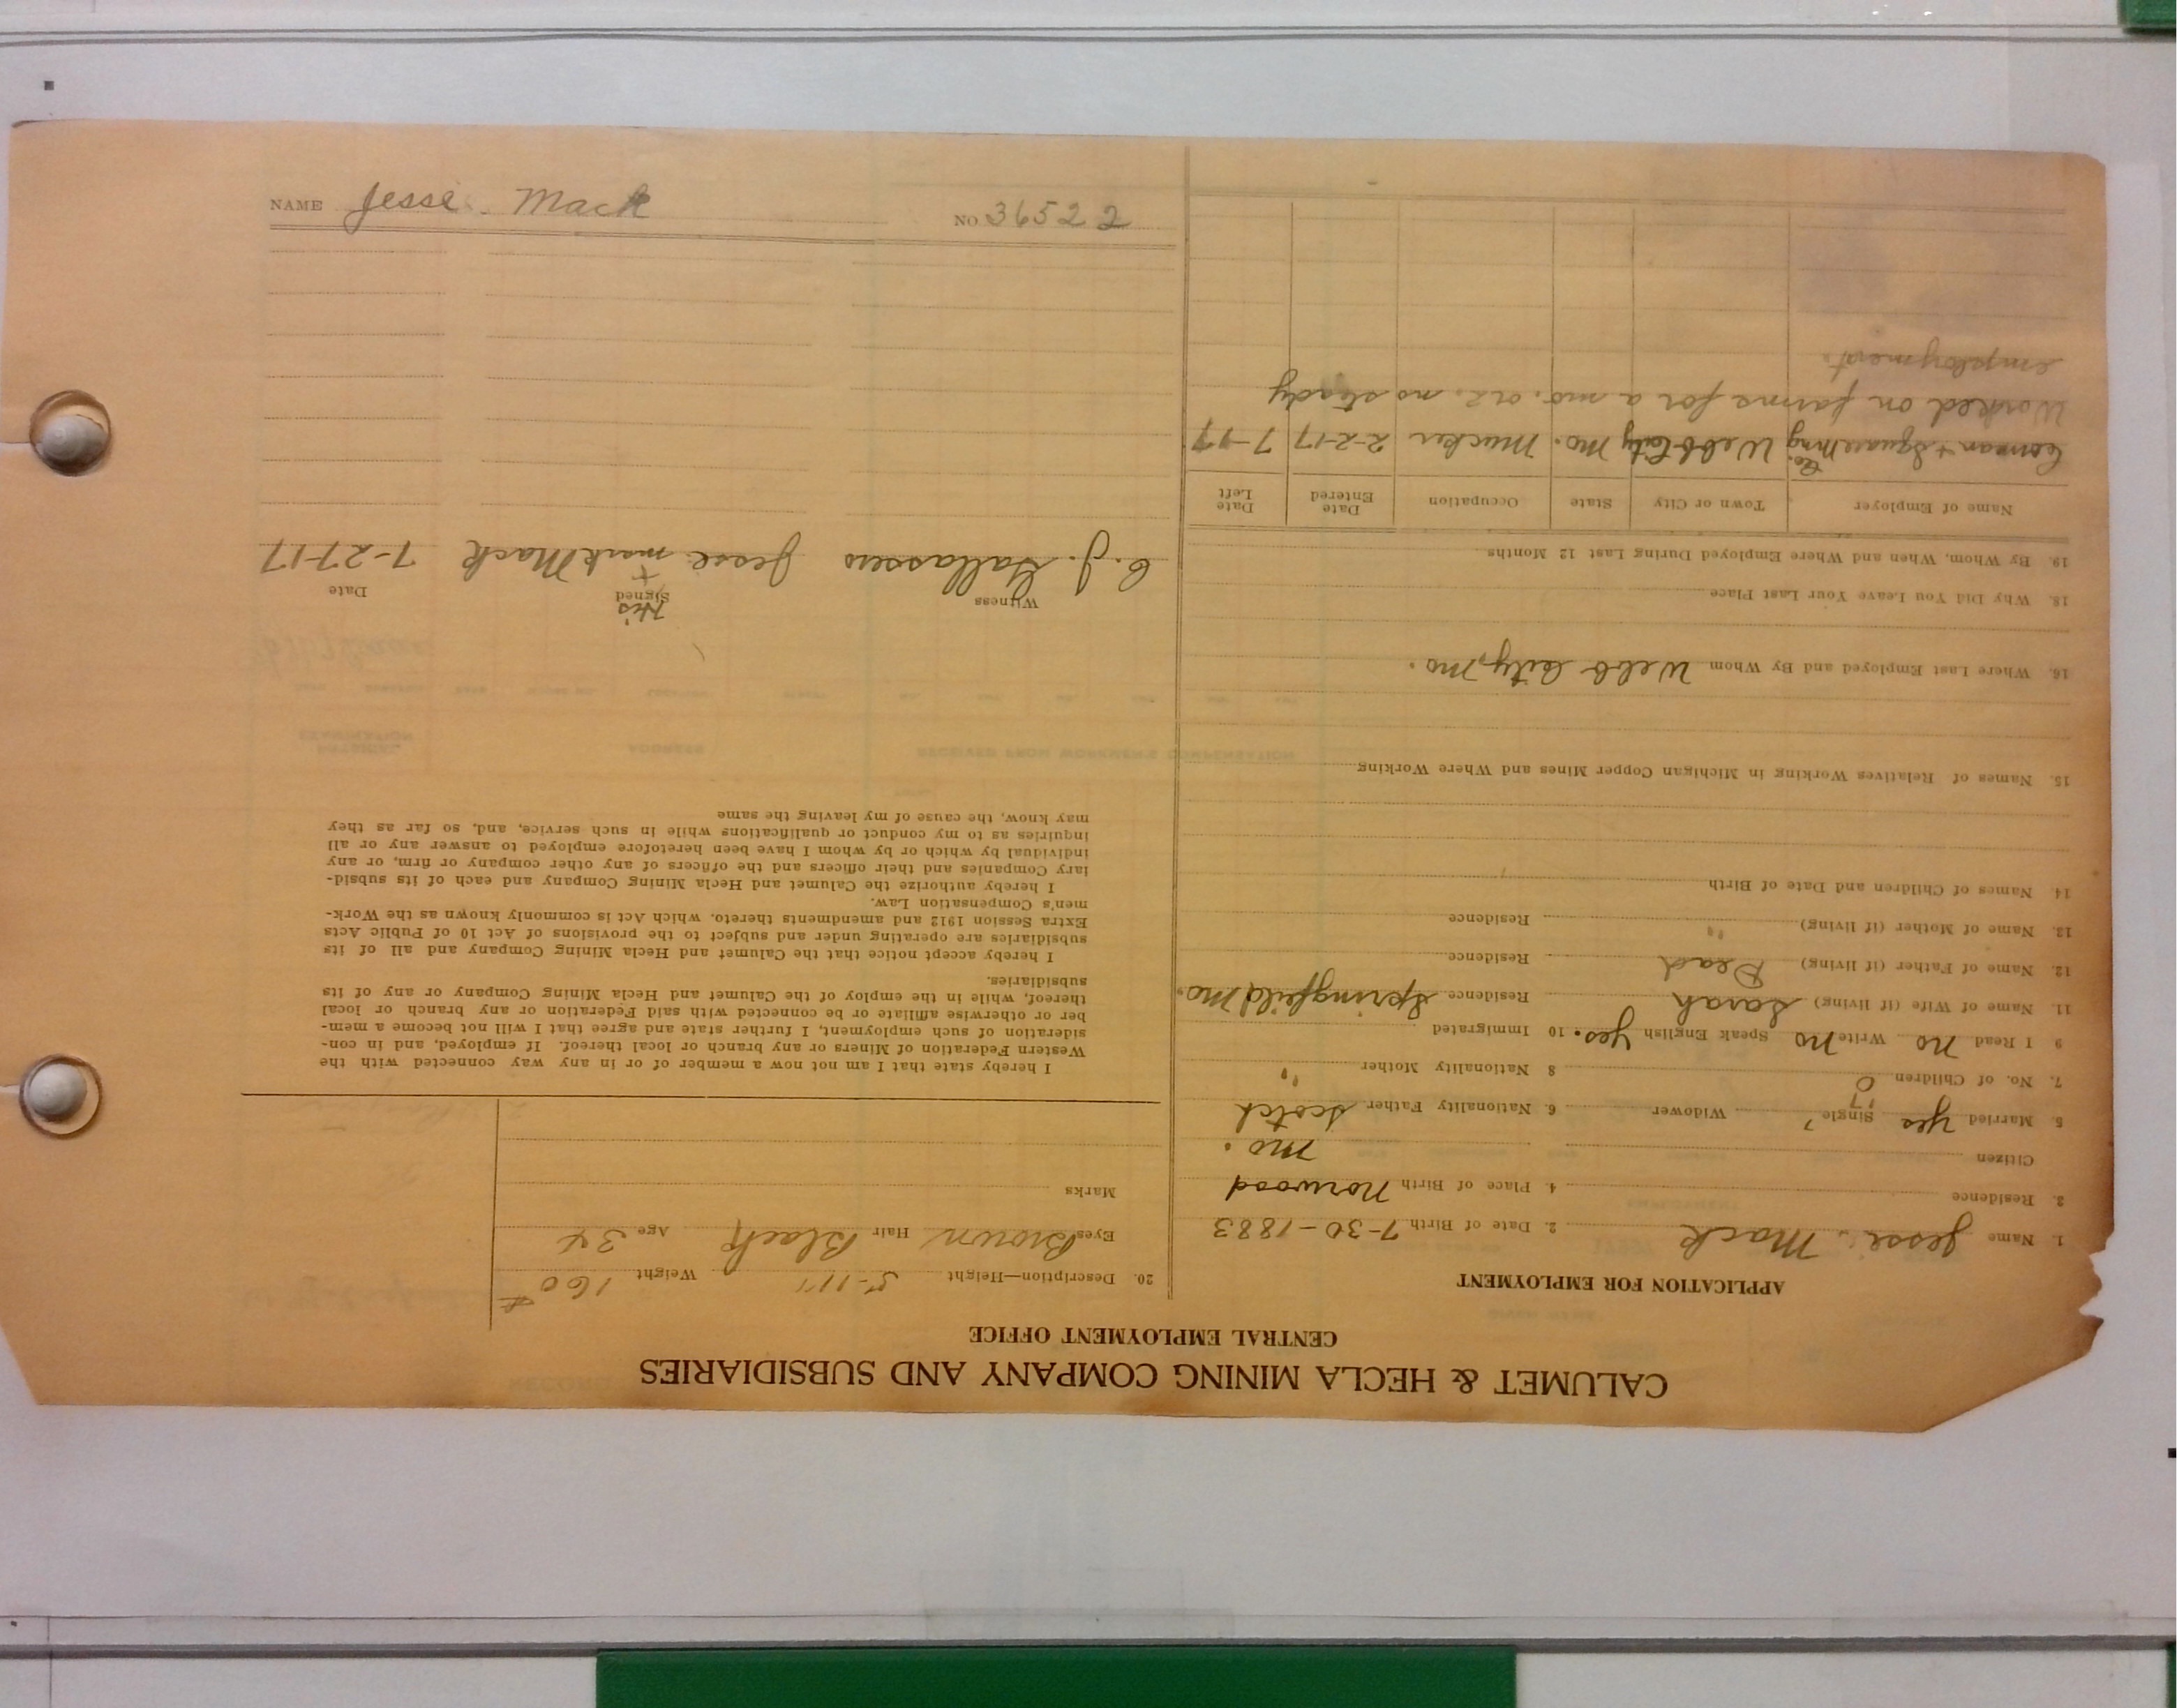 CALUMET & HECLA MINING COMPANY AND SUBSIDIARIES
CENTRAL EMPLOYMENT OFFICE
APPLICATION FOR EMPLOYMENT
1. Name Jesse Mack 2. Date of Birth 7-30-1883
3. Residence 4. Place of Birth Norwood
Citizen Mo.
5. Married Yes Single ? Widower 6. Nationality Father Scotch
7. No. of Children 0 8 Nationality Mother "
9 I Read No Write No Speak English Yes. 10 Immigrated
11. Name of Wife (if living) Sarah Residence Springfeild Mo.
12. Name of Father (if living) Dead Residence
13. Name of Mother (if living) " Residence
14. Names of Children and Date of Birth
15. Names of Relatives Working in Michigan Copper Mines and Where Working
16. Where Last Employed and By Whom Webb City, Mo.
18. Why Did You Leave Your Last Place
19. By Whom, When and Where Employed During Last 12 Months
Name of Employer Town or City State Occupation Date Entered Date Left
+ Square Mng Co. Webb City Mo. Mucker 2-2-17 7-17
Worked on farms for a mo. or 2. no steady
employment.
20. Description—Height 5-11" Weight 160#
Eyes Brown Hair Black Age 34
Marks
I hereby state that I am not now a member of or in any way connected with the
Western Federation of Miners or any branch or local thereof. If employed, and in con-
sideration of such employment, I further state and agree that I will not become a mem-
ber or otherwise affiliate or be connected with said Federation or any branch or local
thereof, while in the employ of the Calumet and Hecla Mining Company or any of its
subsidiaries.
I hereby accept notice that the Calumet and Hecla Mining Company and all of its
subsidiaries are operating under and subject to the provisions of Act 10 of Public Acts
Extra Session 1912 and amendments thereto, which Act is commonly known as the Work-
men's Compensation Law.
I hereby authorize the Calumet and Hecla Mining Company and each of its subsid-
iary Companies and their officers and the officers of any other company or firm, or any
individual by which or by whom I have been heretofore employed to answer any or all
inquiries as to my conduct or qualifications while in such service, and, so far as they
may know, the cause of my leaving the same
Witness Signed Date
His
C. J. Jesse + mark Mack 7-27-17
NAME Jesse Mack NO 36522